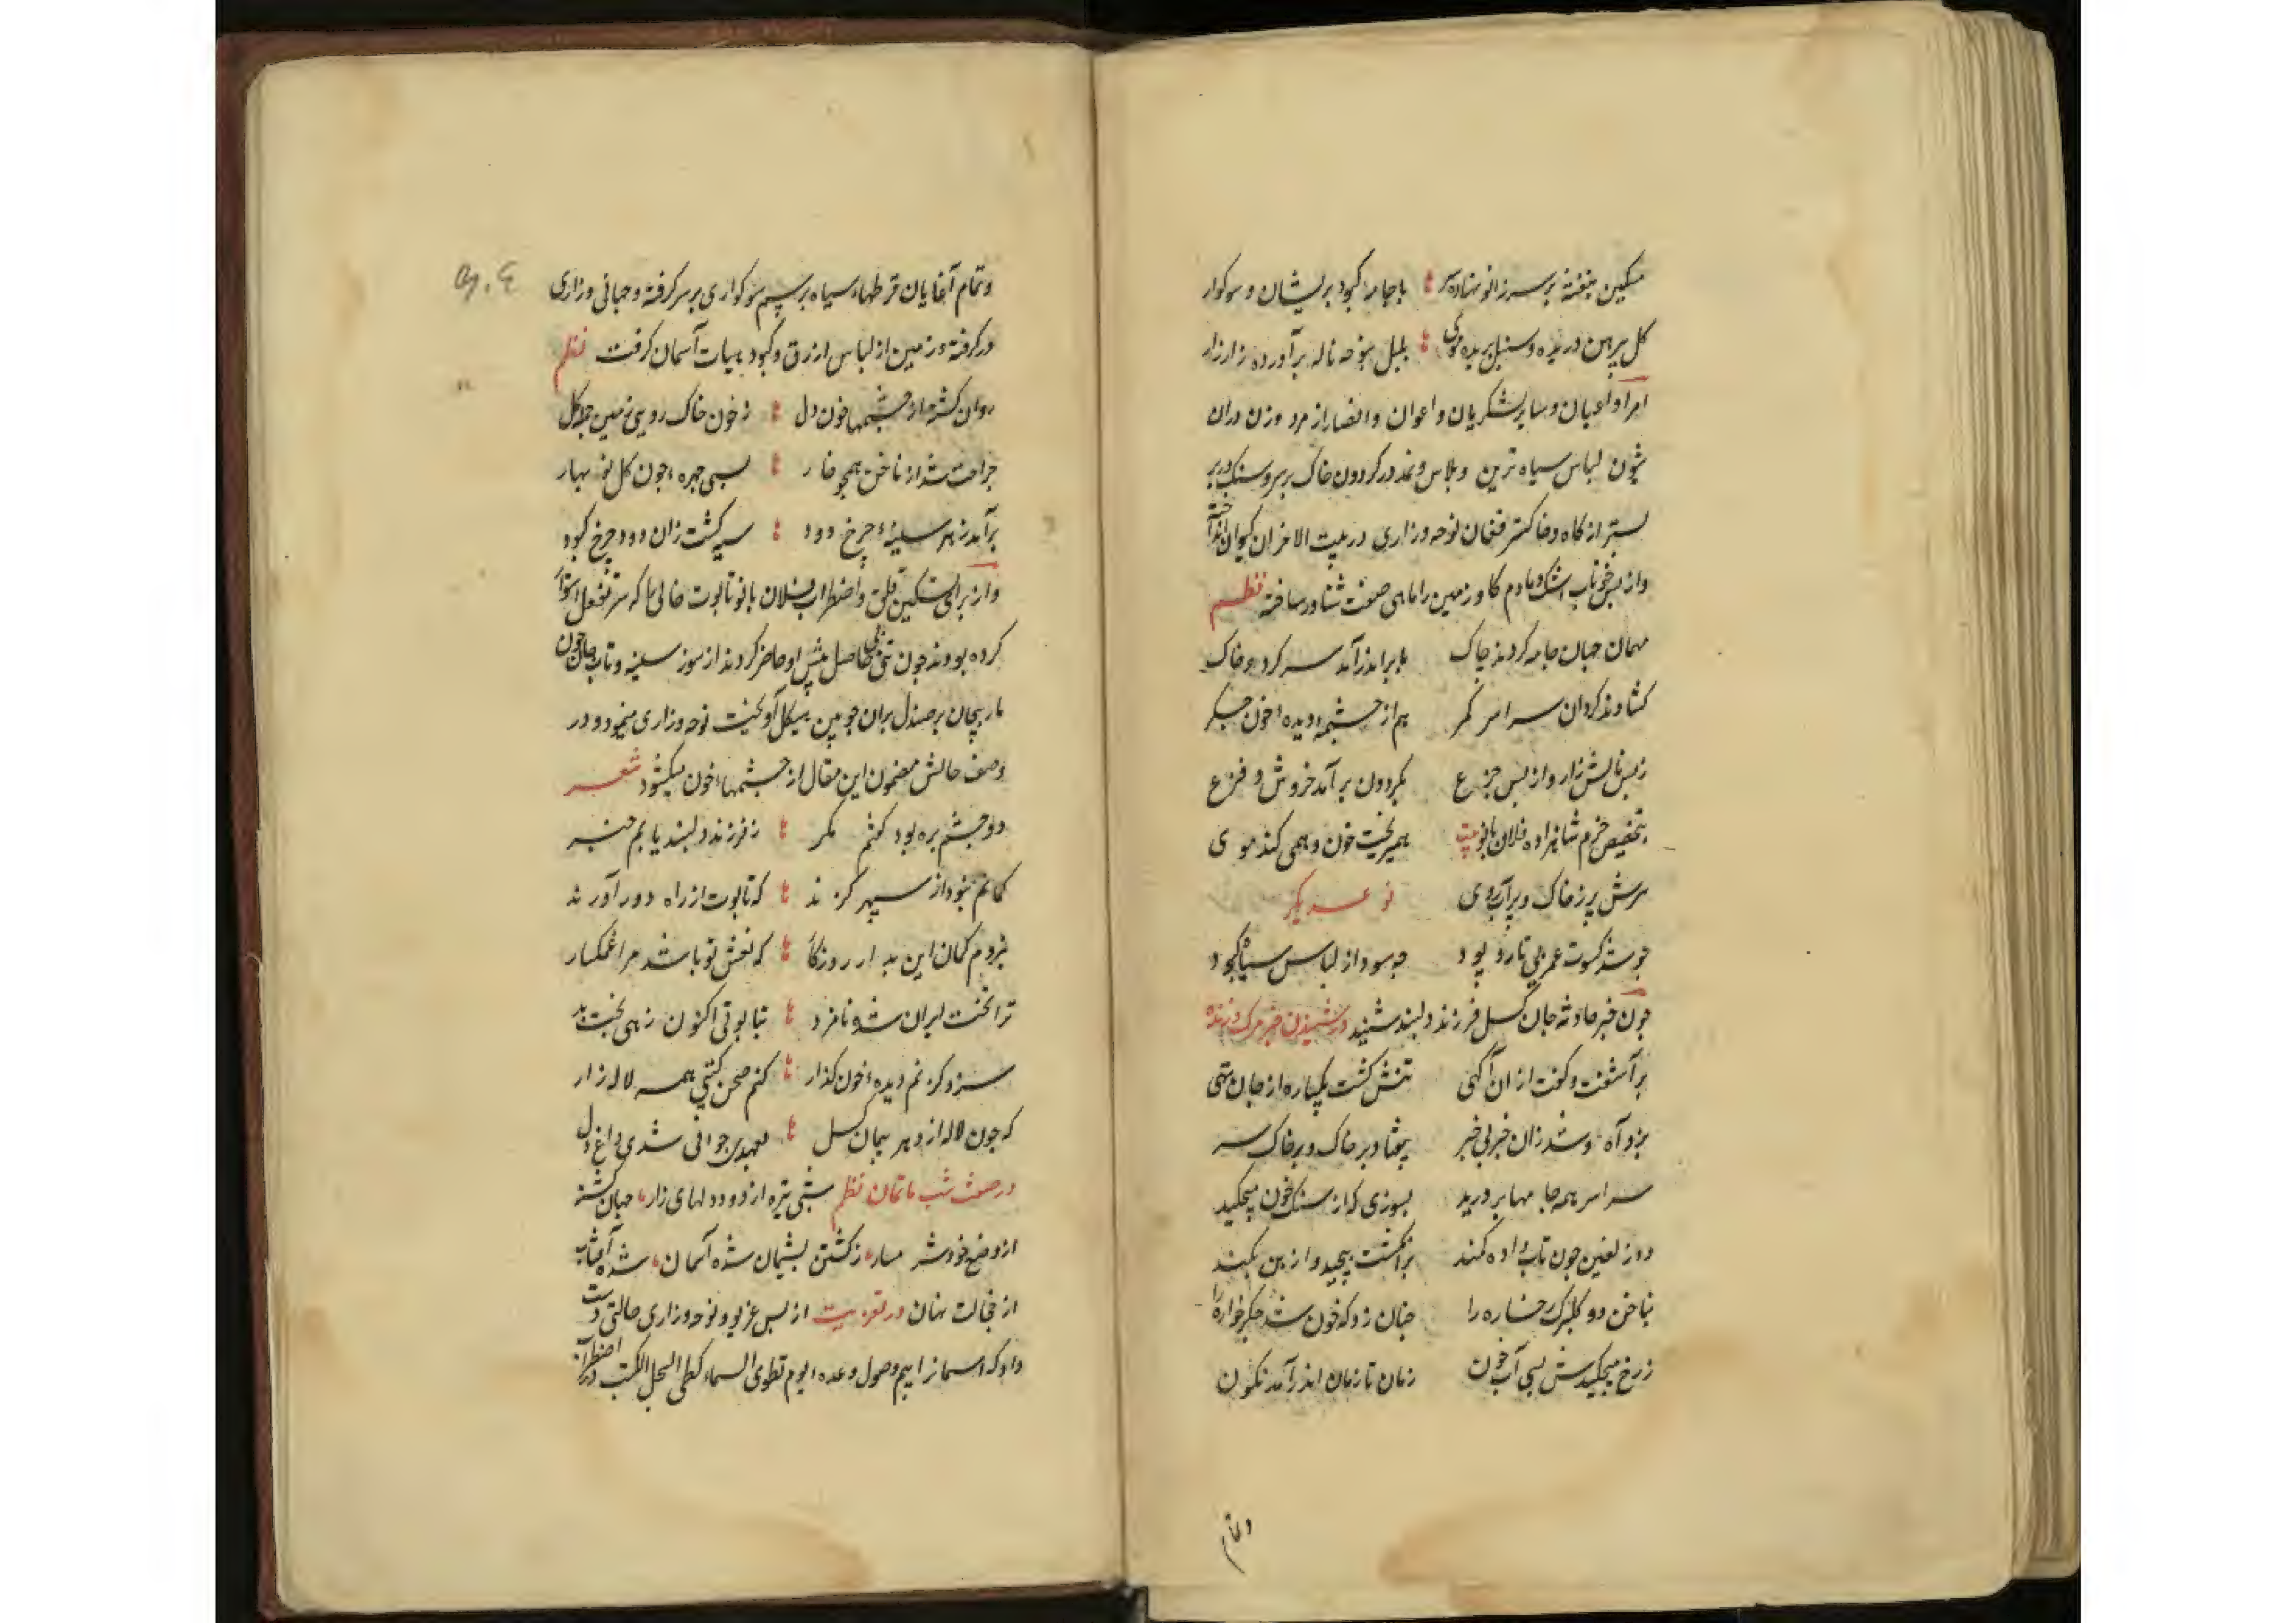 مسکین بنفشه بر سر زانو نهاده سر باجامه کبود پریشان و سوکوار
کل پیرهن دریده و سنبل بریده موی بلبل بنوحه ناله برآورده زار زار
امرا و اعیان و سایر لشکریان و اعوان و انصار از مرد و زن دران
شون لباس سیاه ترین و پلاس و نمد در کردون خاک بر سر و سنک در بر
بستر از کاه و خاکستر فغان نوحه و زاری در بیت الاحزان کیوان انداخته
و از بس خوناب اشک دمادم کاو زمین را ماهی صفت شناور ساخته نظم
مهان جهان جامه کردند چاک بابر اندر آمد سر کرد و خاک
کشادند کردان سراسر کمر هم از چشمه دیده خون جکر
ز بس نالش زار و از بس جزع بکردون برآمد خروش و فزع
بتخصیص خرم شاهزاده فلان بانو بیت همیریخت خون و همی کند موی
سرش پر ز خاک و پر آب روی نوعدیکر
جو شد کسوت عمر بی تار و پود جه سود از لباس سیاه و کبود
جون خبر حادثه جان کسل فرزند دلبند شنید در شنیدن خبر مرک فرزند
برآشفت و کفت از ان آکهی تنش کشت یکباره از جان تهی
بزد آه و شد زان خبر بی خبر بیفتاد بر خاک و بر خاک سر
سراسر همه جامها بر درید بسوزی که از سنک خون میچکید
دو زلفین جون تاب داده کمند بر انکشت پیچید و از بن بکند
بناخن دو کلبرک رخساره را جنان زد که خون شد جکر خواره را
ز رخ میچکیدش بسی آب خون زمان تا زمان اندر آمد نکون
وتمام
وتمام آغایان قرطهاء سیاه برسم سوکواری بر سر کرفته و جهانی و زاری
در کرفته و زمین از لباس ازرق و کبود بهیات آسمان کرفت نظم
روان کشته از چشمها خون دل ز خون خاک روی زمین جمله کل
جراحت شد از ناخن همچو خار بسی چهره جون کل نوبهار
برآمد ز هر سینه چرخ دود سیه کشت زان دود چرخ کبود
و از برای تسکین قلق و اضطراب فلان بانو تابوت خالی که
کرده بودند جون حاصل پیش او حاضر کردند از سوز سینه و تاب جان جون
مار پیچان بر صندل بران جوبین هیکل آویخت نوحه و زاری مینمود و در
وصف حالش مضمون این مقال از چشمهاء خون میکشود شعر
دو چشم بره بود کفتم مکر ز فرزند دلبند یابم خبر
کمانم نبود از سپهر کزند که تابوت از راه دور آورند
نبردم کمان این بد از روزکار که نعش تو باشد مرا غمکسار
ترا تخت ایران شده نامزد بتابوتی اکنون زهی بخت بد
سزد کر نم دیده خون کذار کنم صحن کیتی همه لاله زار
که جون لاله از دهر پیمان کسل بعهد جوانی شدی داغ دل
در صفت شب ماتمان نظم شبی تیره از دود دلهای زار جهان کشته
از وضع خود شرمسار ز کشتن پشیمان شده آسمان شده آفتاب
از خجالت نهان در تعزیت از بس غریو و نوحه و زاری حالتی دست
داد که آسمانرا بیم وصول وعده یوم نطوی السماء کطی السجل للکتب در اضطراب